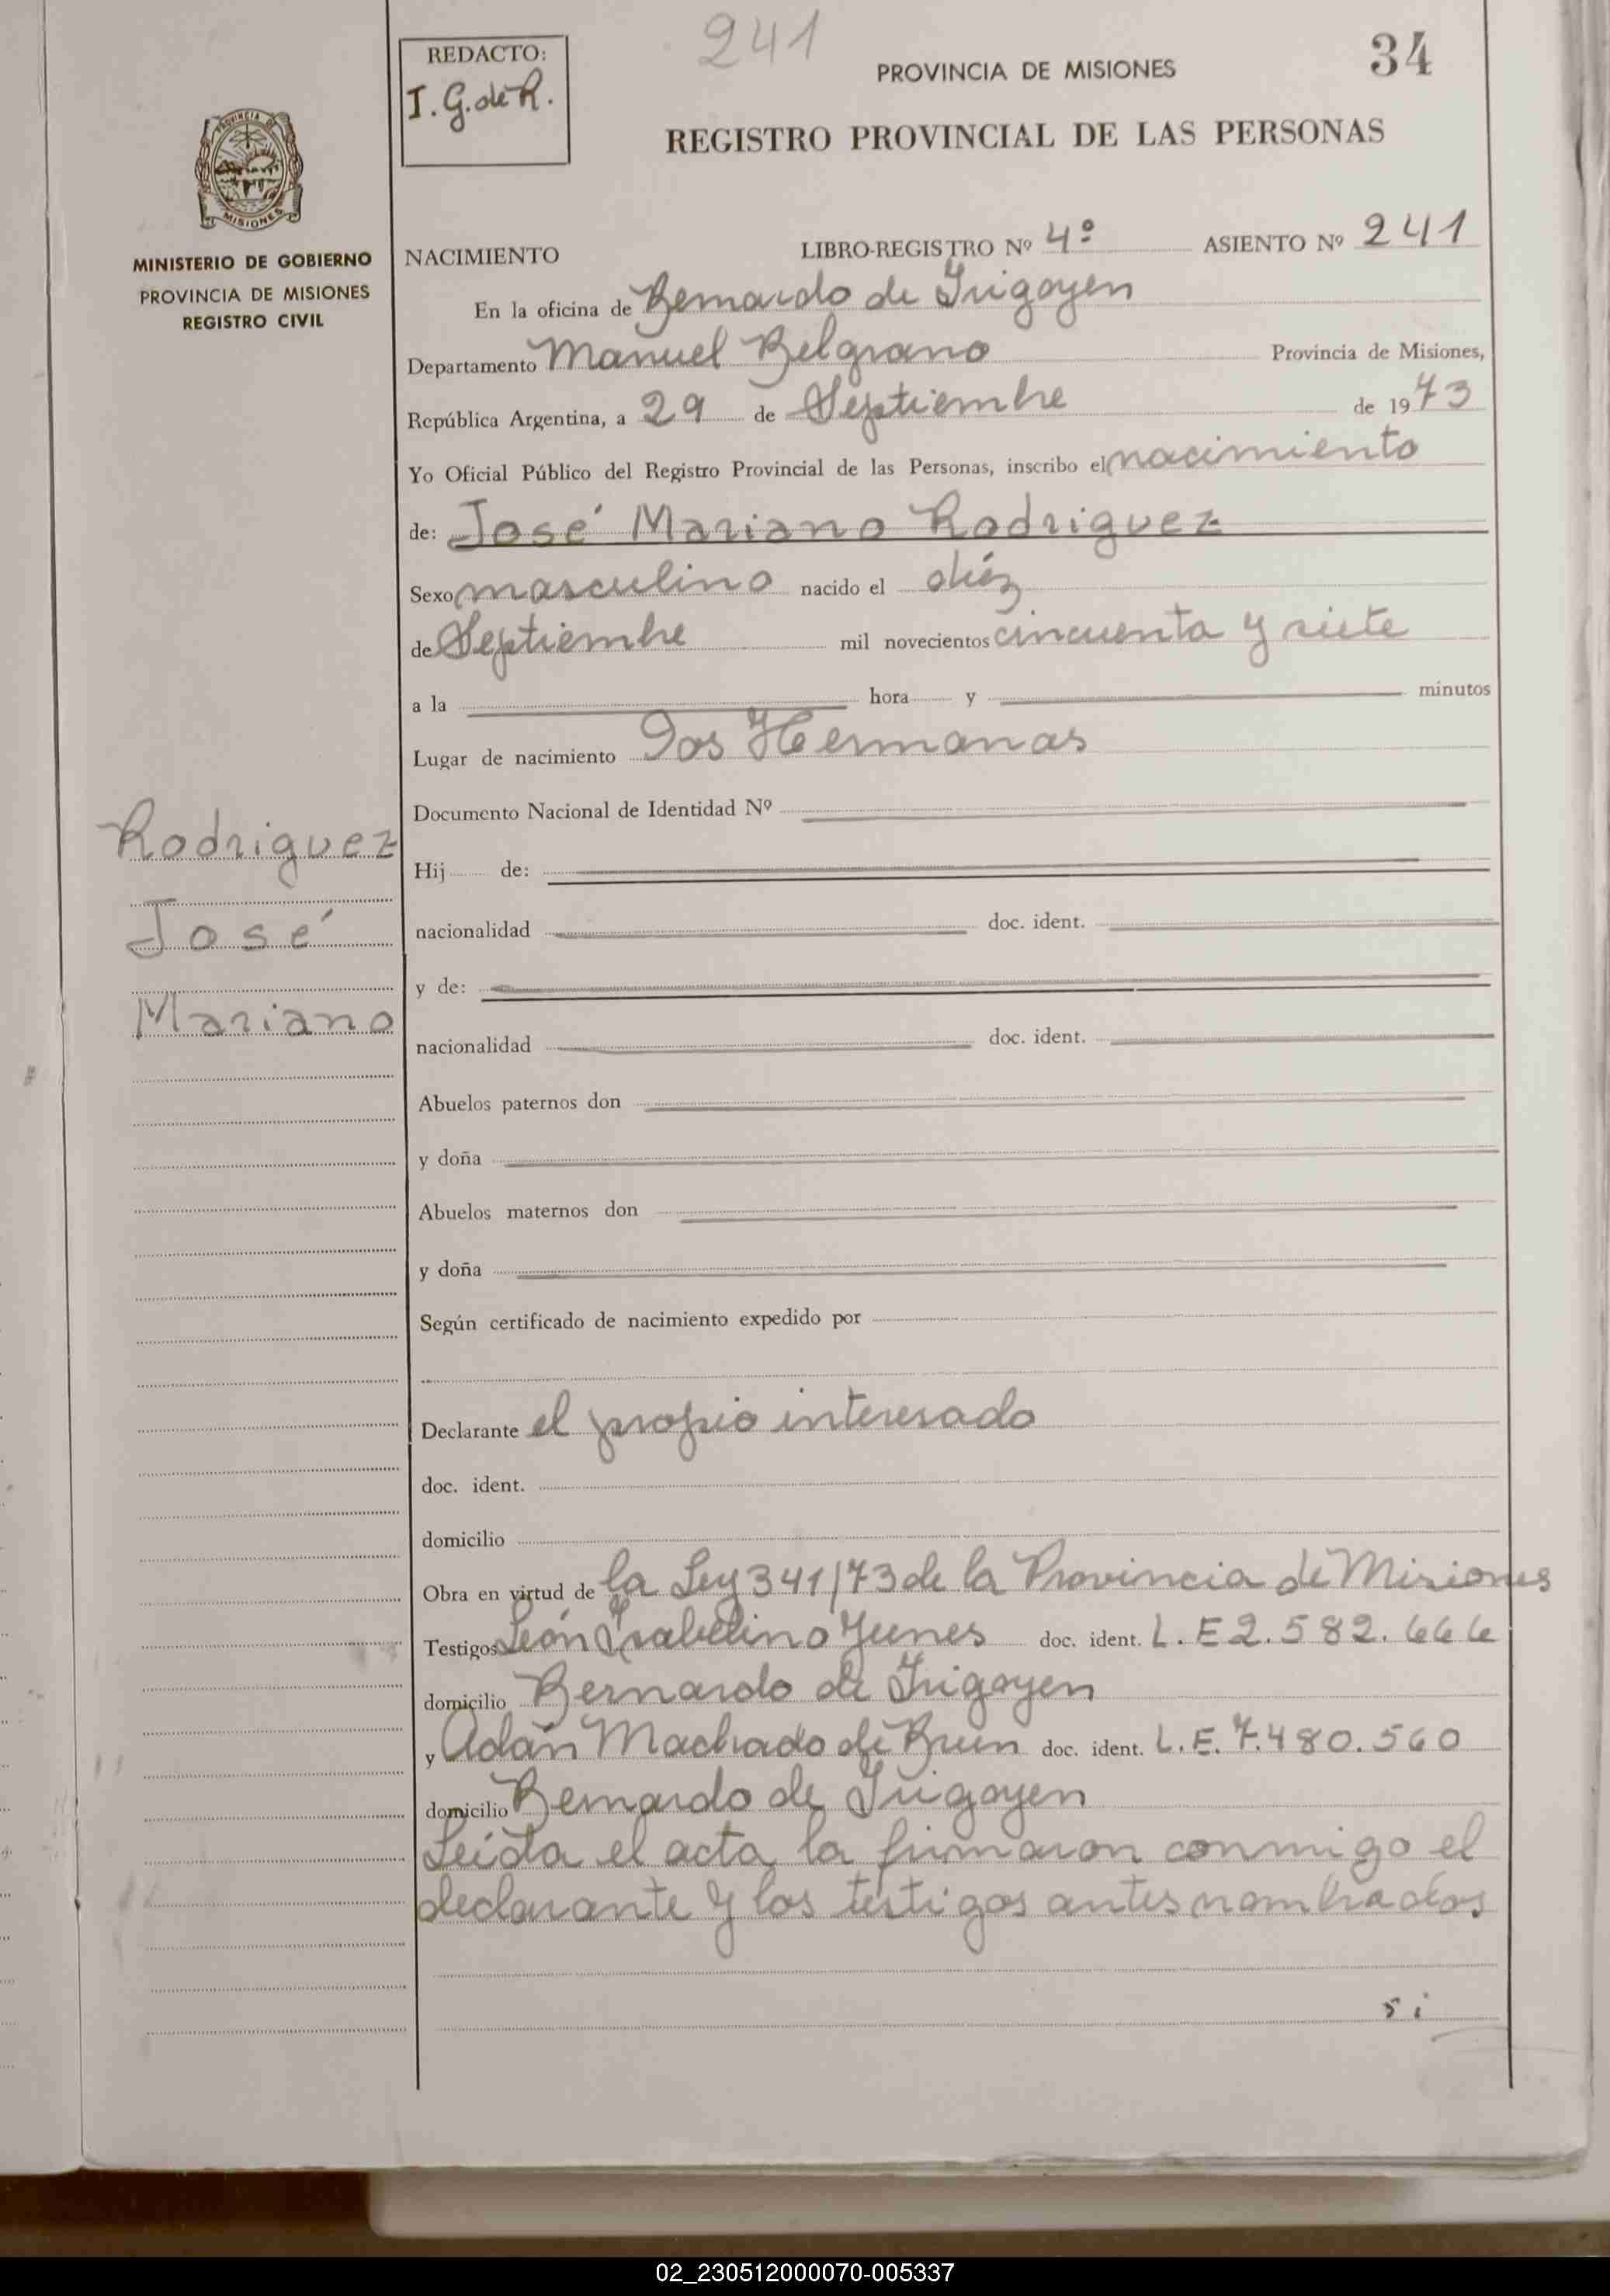 241
34
REDACTO:
I. G. de R.
PROVINCIA DE MISIONES
REGISTRO PROVINCIAL DE LAS PERSONAS
PROVINCIA DE
MISIONES
MINISTERIO DE GOBIERNO
PROVINCIA DE MISIONES
REGISTRO CIVIL
NACIMIENTO LIBRO-REGISTRO Nº 4º ASIENTO Nº 241
En la oficina de Bernardo de Irigoyen
Departamento Manuel Belgrano Provincia de Misiones,
República Argentina, a 29 de Septiembre de 1973
Yo Oficial Público del Registro Provincial de las Personas, inscribo el nacimiento
de: José Mariano Rodriguez
Sexo masculino nacido el diéz
de Septiembre mil novecientos cincuenta y siete
a la hora y minutos
Lugar de nacimiento Dos Hermanas
Documento Nacional de Identidad Nº
Rodriguez
José
Mariano
Hij de:
nacionalidad doc. ident.
y de:
nacionalidad doc. ident.
Abuelos paternos don
y doña
Abuelos maternos don
y doña
Según certificado de nacimiento expedido por
Declarante el propio interesado
doc. ident.
domicilio
Obra en virtud de la Ley 341/73 de la Provincia de Misiones
Testigos León Isabelino Yunes doc. ident. L.E 2.582.666
domicilio Bernardo de Irigoyen
y Adán Machado de Bruin doc. ident. L.E. 7.480.560
domicilio Bernardo de Irigoyen
Leída el acta la firmaron conmigo el
declarante y los testigos antes nombrados
si
02_230512000070-005337